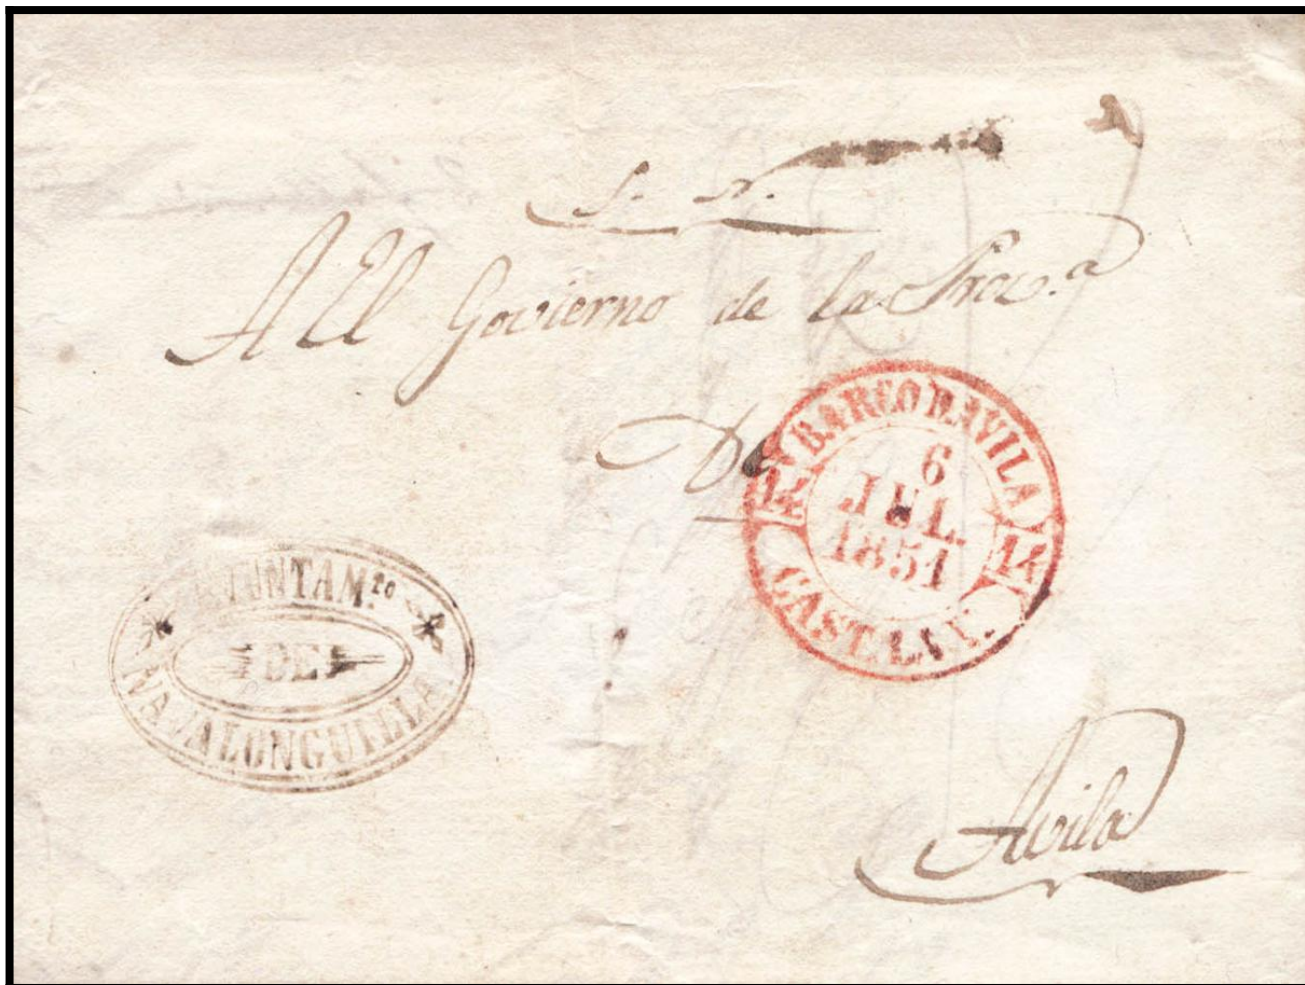 S. N.
Al El Govierno de la Prov.ª
De
BARCO D.AVILA
6
JUL.
1851
14 14
CAST.LA V.
AYUNTAM.to
DE
NAVALONGUILLA
Avila